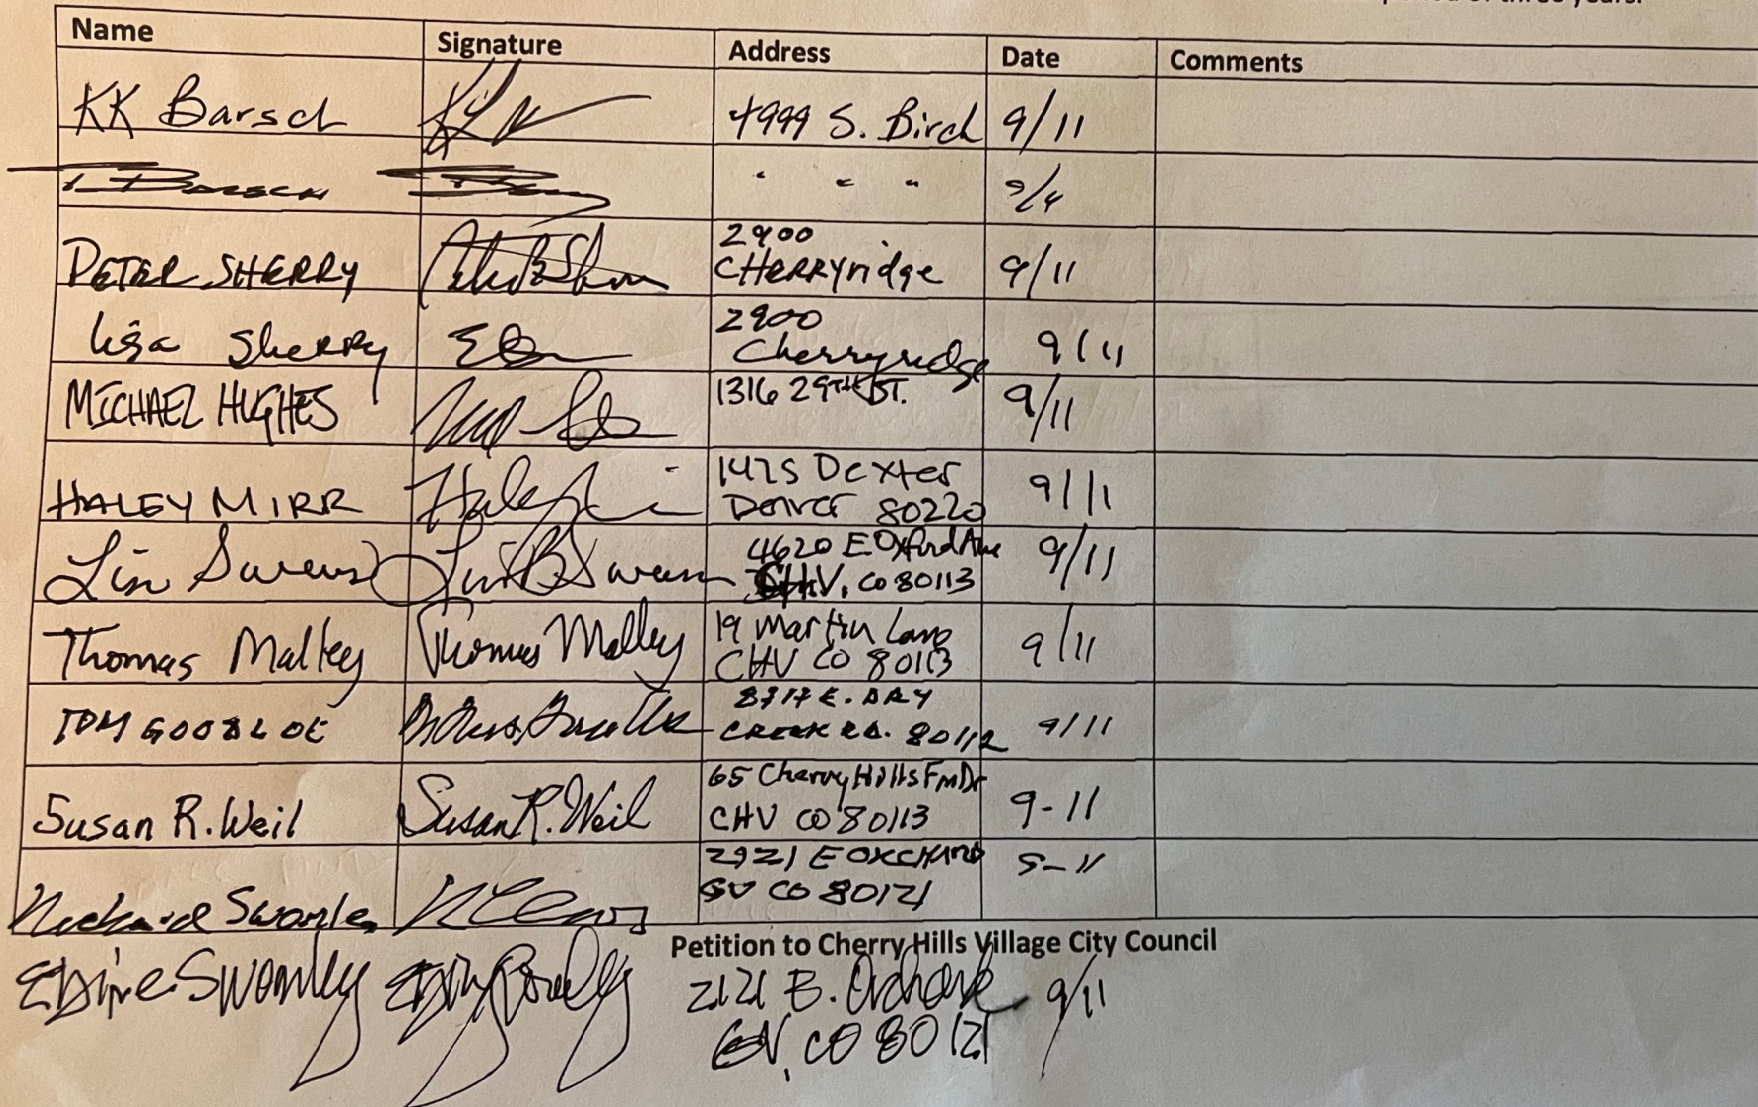 period of three years.
Name Signature Address Date Comments
KK Barsch 4999 S. Birch 9/11
Barsch " " " 9/4
PETER SHERRY 2900
CHERRYridge 9/11
Lisa Sherry 2900
Cherryridge 9/11
MICHAEL HUGHES 1316 29TH ST. 9/11
HALEY MIRR 1475 Dexter
Denver 80220 9/11
Lin Swensen 4620 E Oxford Ave
CHV, CO 80113 9/11
Thomas Malley Thomas Malley 19 Martin Lane
CHV CO 80113 9/11
TOM GOODLOE E. DRY
CREEK RD. 80112 9/11
Susan R. Weil Susan R. Weil 65 Cherry Hills Fm Dr
CHV CO 80113 9-11
Swanley E
GV CO 80121 9-11
Petition to Cherry Hills Village City Council
Swomley 2121 E. Orchard 9/11
GV, CO 80121